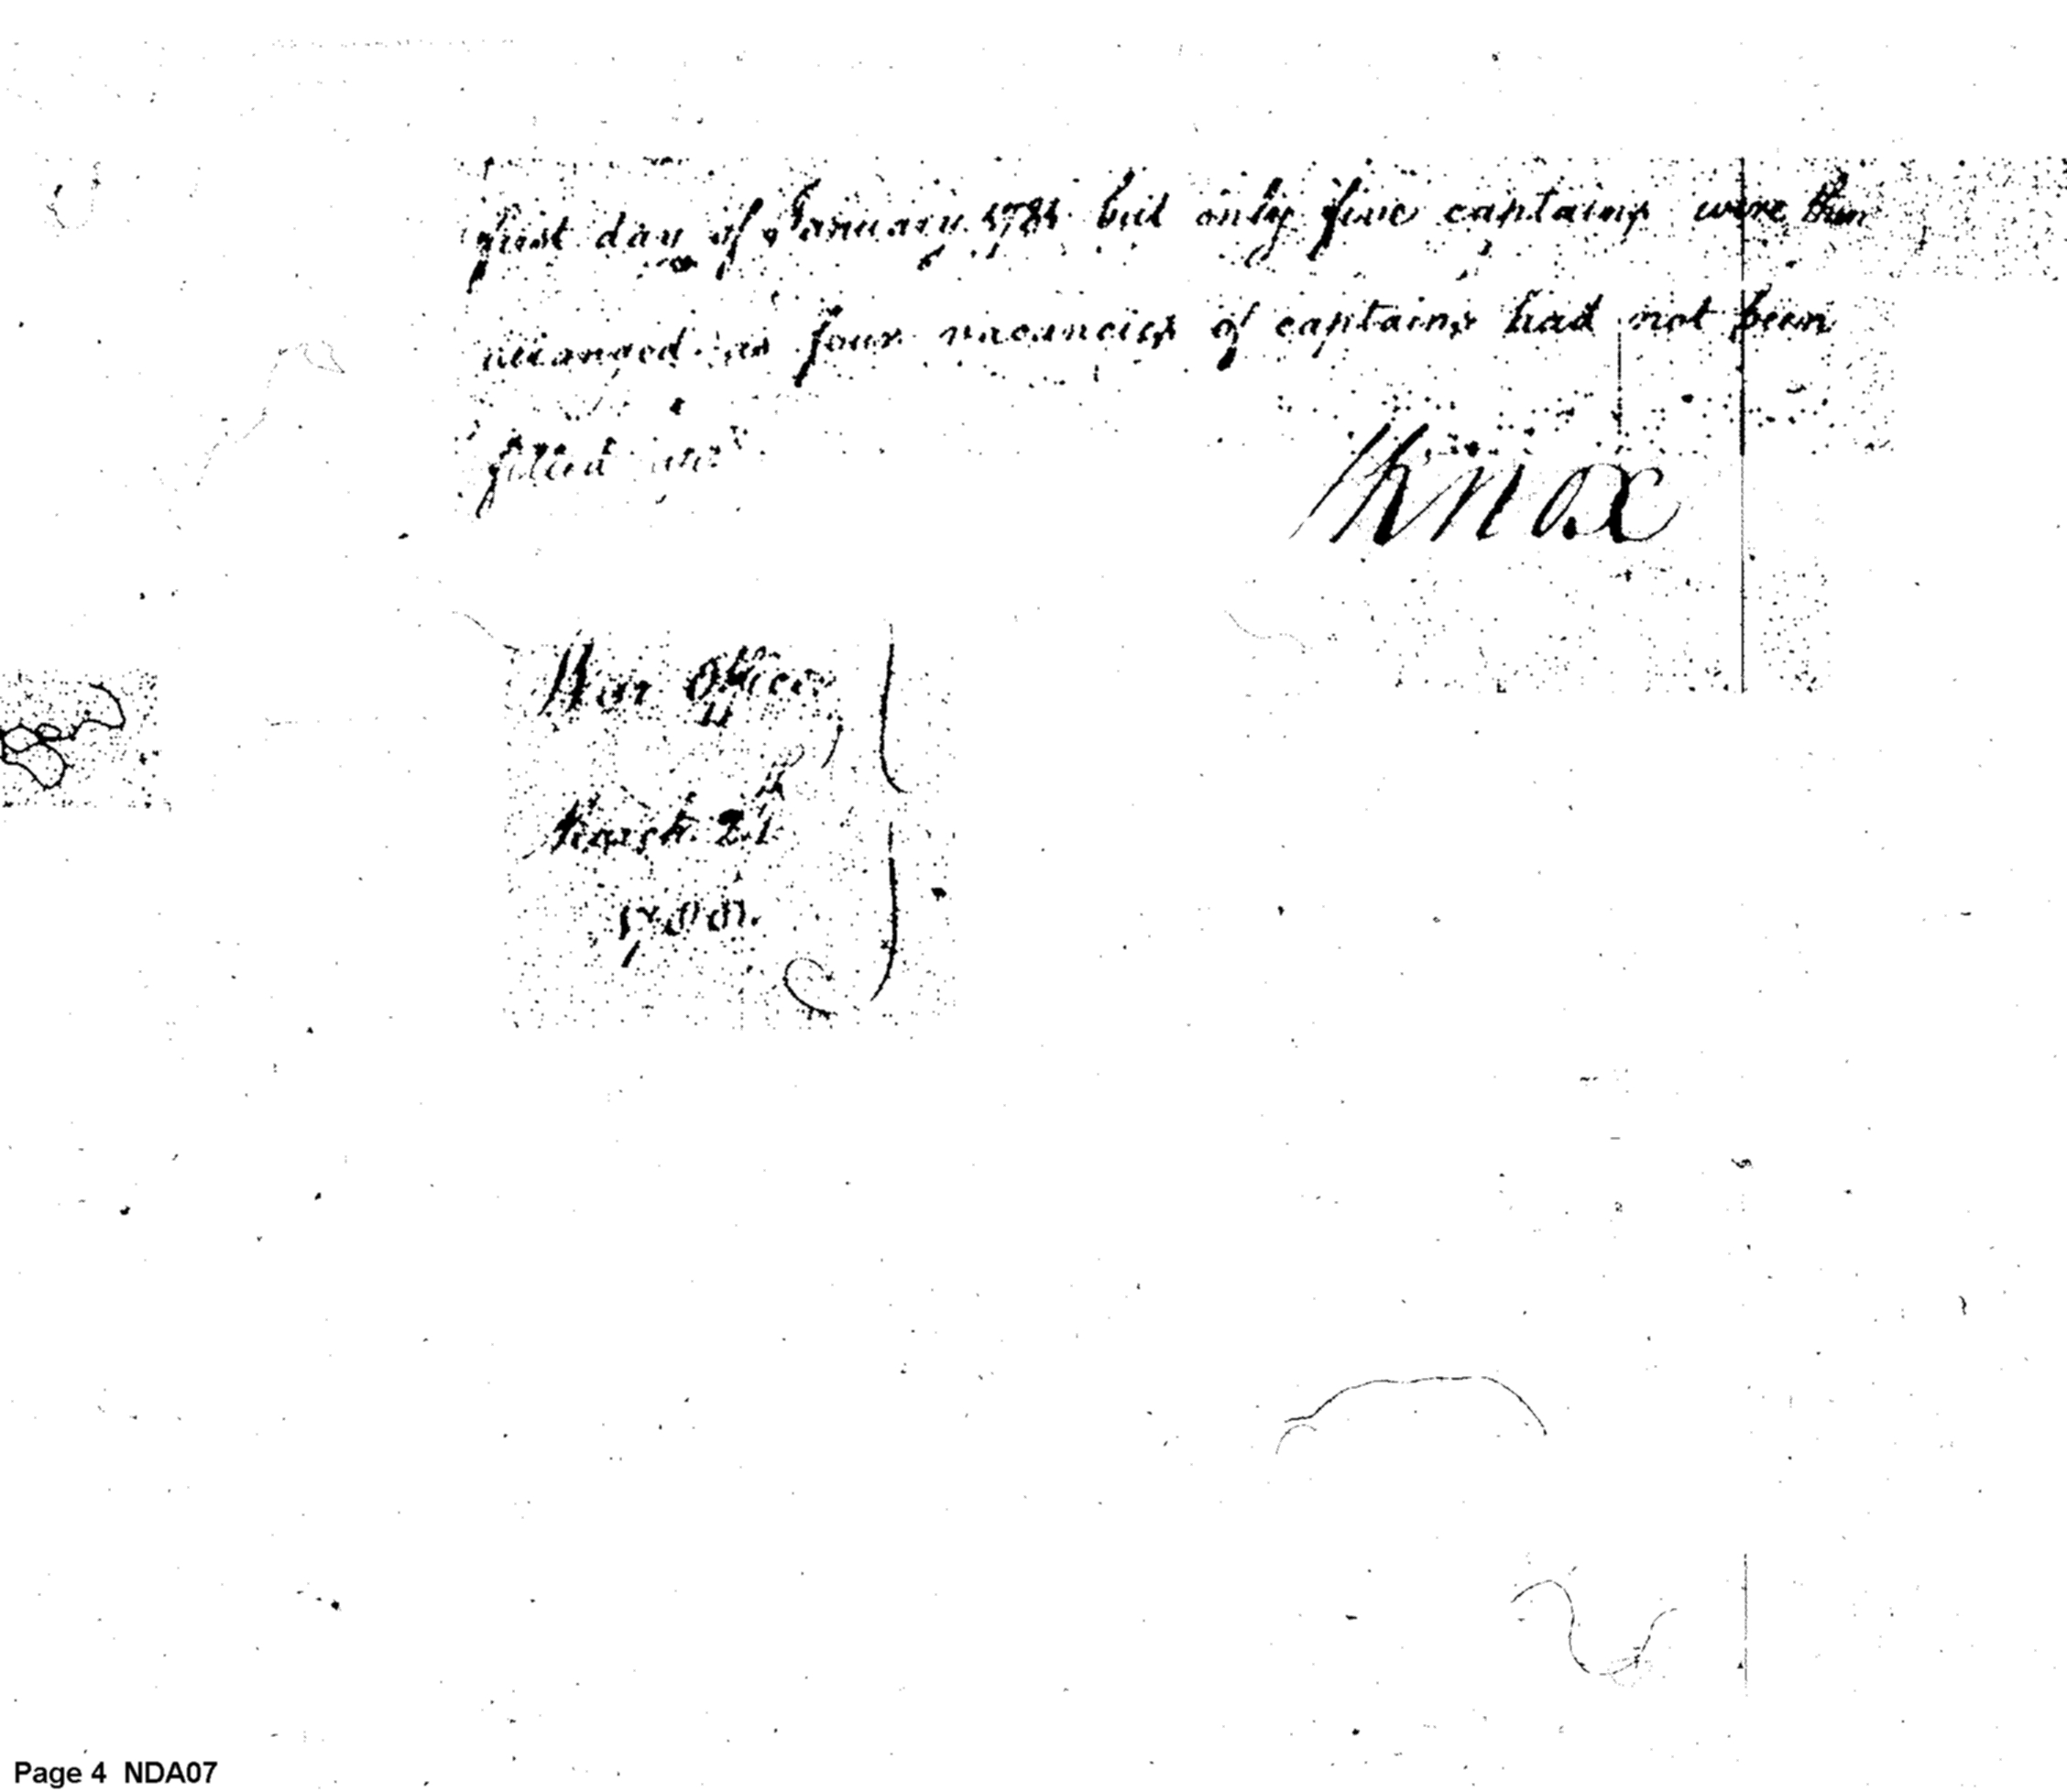 first day of January 1781 but only five captains were then
arranged as four vacancies of captains had not been
filled up
HKnox
War Office
March 21
Page 4 NDA07